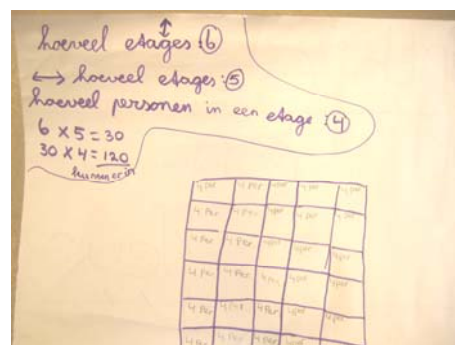 hoeveel etages ↕ : 6
↔ hoeveel etages : 5
hoeveel personen in een etage : 4
6 X 5 = 30
30 X 4 = 120
kunnen in
4 per 4 per 4 per 4 per 4 per
4 per 4 per 4 per 4 per 4 per
4 per 4 per 4 per 4 per 4 per
4 per 4 per 4 per 4 per 4 per
4 per 4 per 4 per 4 per 4 per
4 per 4 per 4 per 4 per